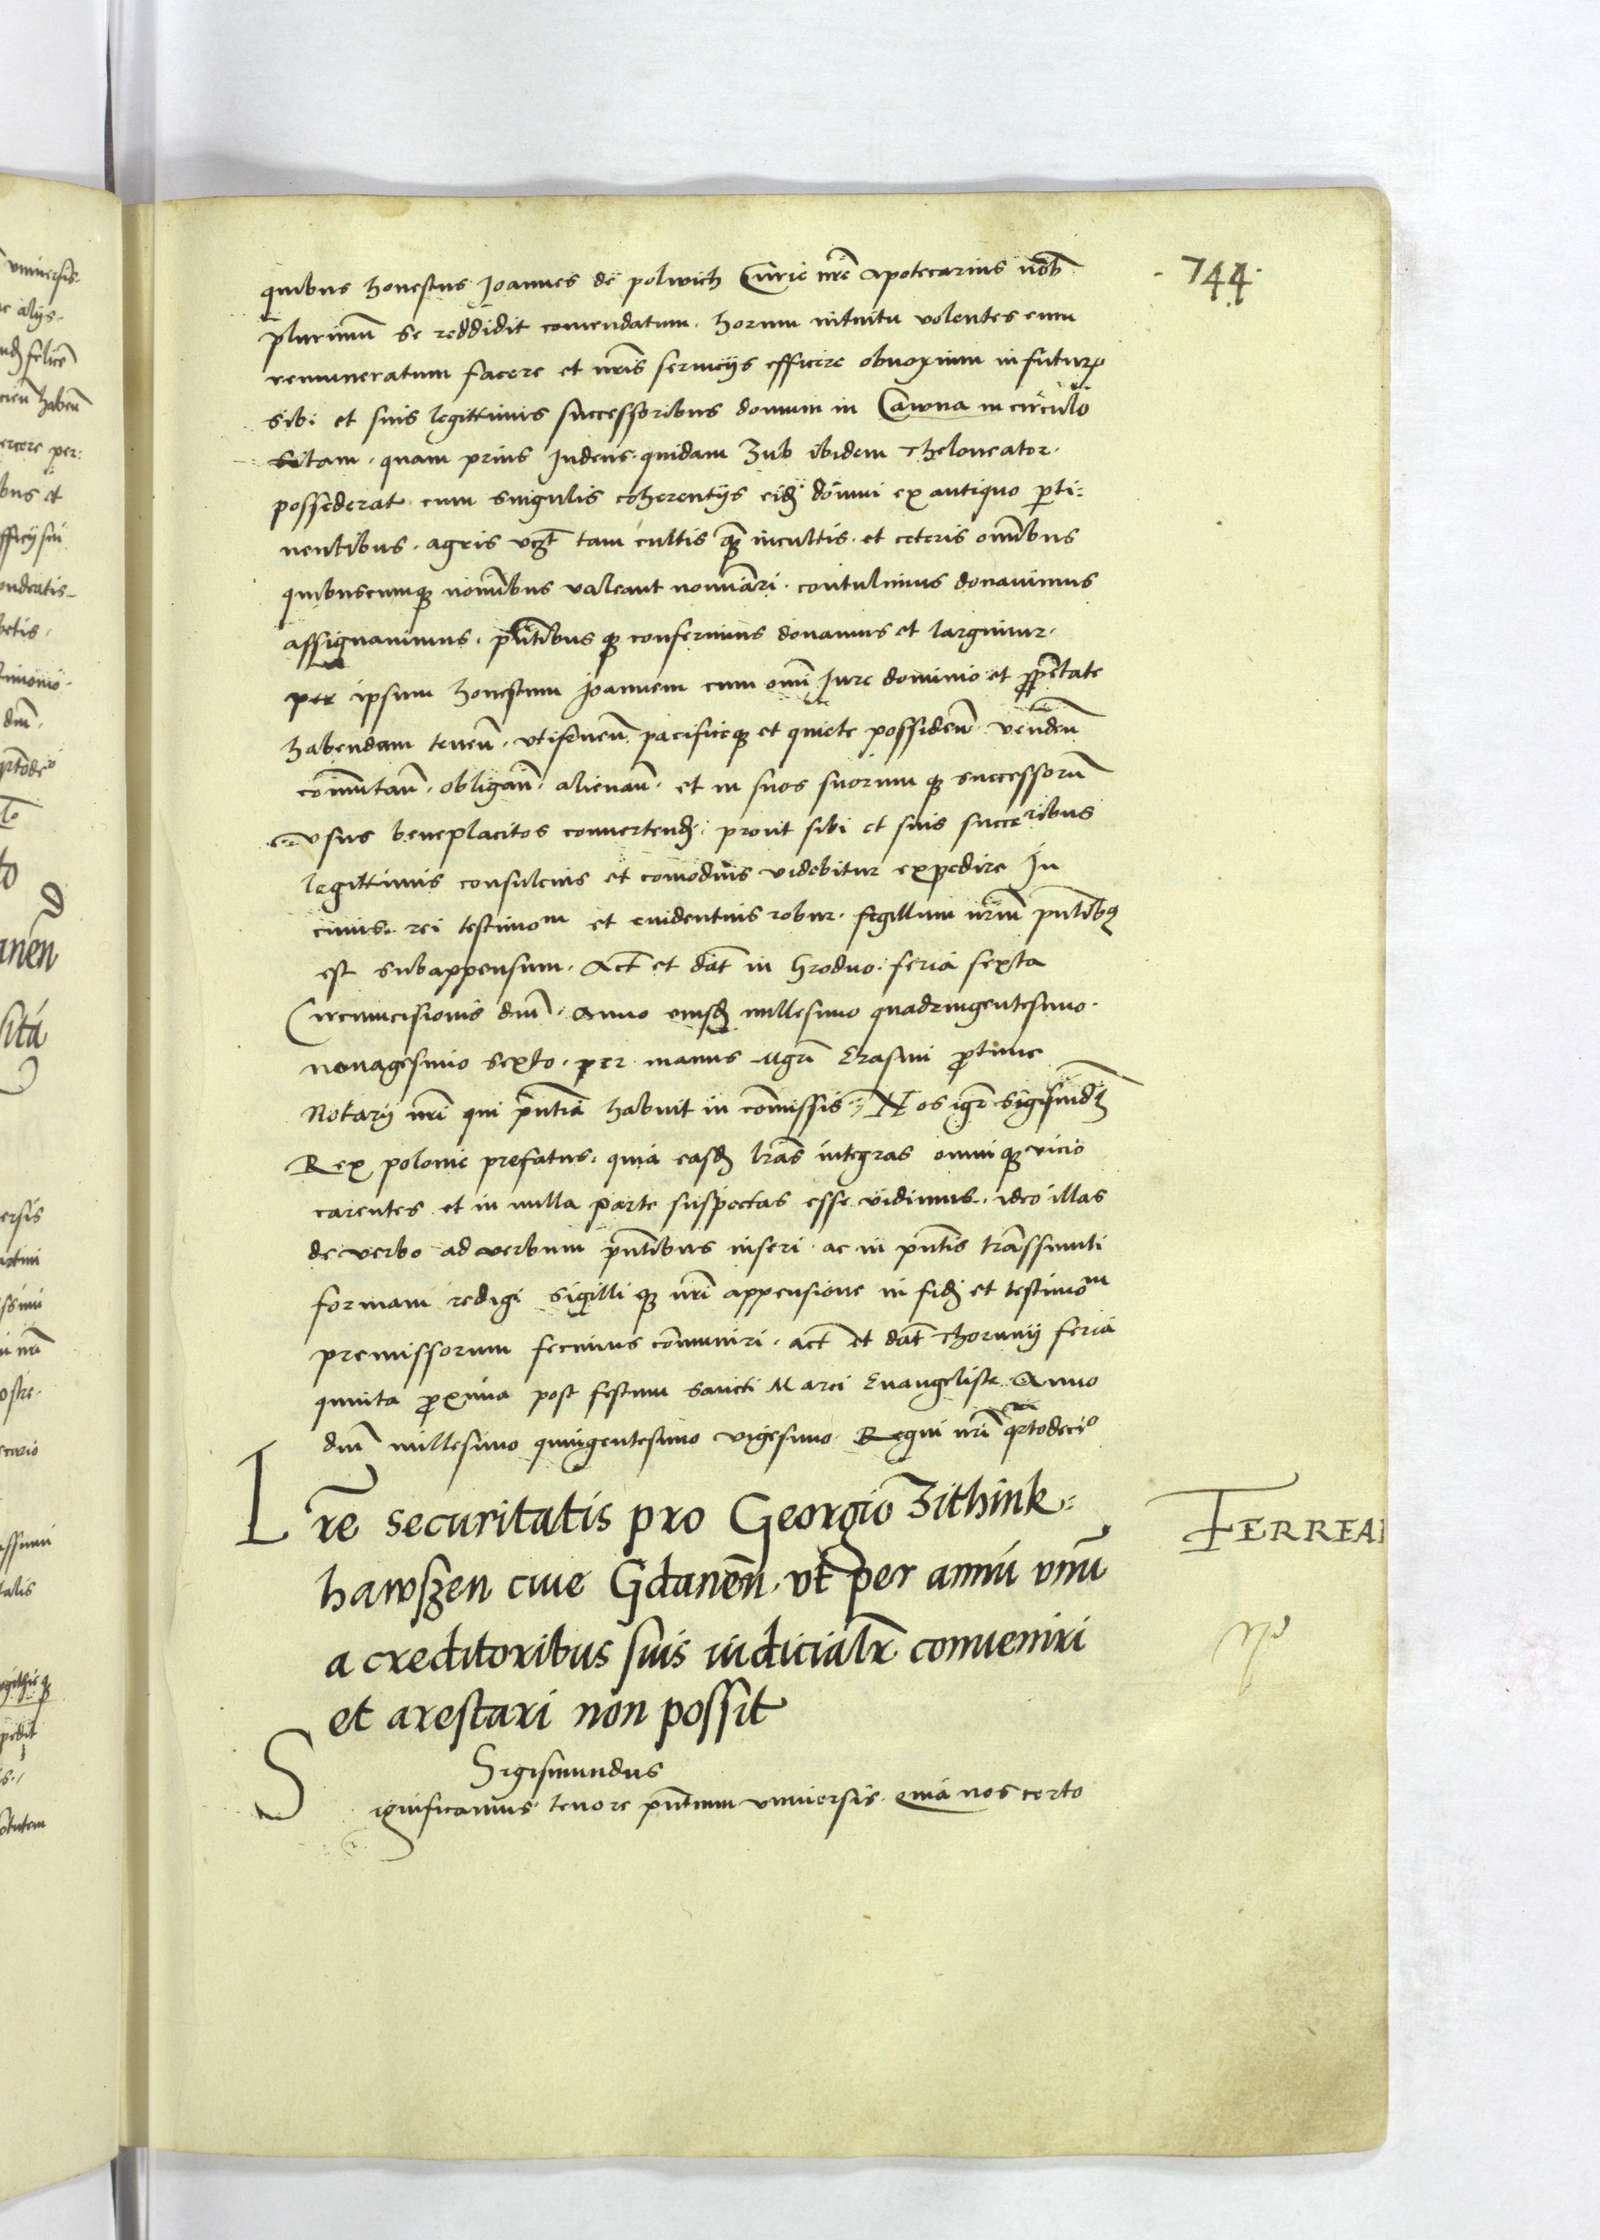 744
quibus honestus Joannes de polwich Curie nre apotecarius nob
plurimum se reddidit comendatum. horum intuitu volentes eum
remuneratum facere et nris seruicijs efficere obnoxium in futur
sibi et suis legittimis successoribus domum in Cawna in circulo
sitam. quam prius Judeus quidam Zub ibidem Theloneator.
possederat cum singulis coherentijs eid domui ex antiquo perti=
nentibus. agris vz tam cultis q incultis. et ceteris omnibus
quibuscumq nominibus valeant nominari. contulimus donauimus
assignauimus. pntibus q conferimus donamus et largimur.
per ipsum honestum Joannem cum omni Jure dominio et proprietate
habendam tenen. vtifruen. pacificeq et quiete possiden. venden
comutan. obligan. alienan. et in suos suorum q successorum
vsus beneplacitos conuertend. prout sibi et suis succeribus
legittimis consulcius et comodius videbitur expedire In
cuius rei testimom et euidentius robur. sigillum nrum pntibus
est subappensum. Act et dat in hrodno. feria sexta
Circumcisionis dni. anno eiusd millesimo quadringentesimo.
nonagesimo sexto. per manus Mgri Erasmi protunc
Notarij nri qui pntia habuit in comissis. Nos igr Sigismud
Rex polonie prefatus. quia easd lras integras omniq vicio
carentes et in nulla parte suspectas esse vidimus. ideo illas
de verbo ad verbum pntibus inseri. ac in pntis transsumti
formam redigi sigilli q nri appensione in fid et testimom
premissorum fecimus communiri. act et dat Thorunij feria
quinta proxima post festum sancti Marci Euangeliste. Anno
dni millesimo quingentesimo vigesimo. Regni nri qrtodecio
Lre securitatis pro Georgio Zithink=
hawszen ciue Gdanen. vt per annu vnu
a creditoribus suis iudicialr conueniri
et arestari non possit
FERREA
Sigismundus
Significamus tenore pntium vniuersis. quia nos certo